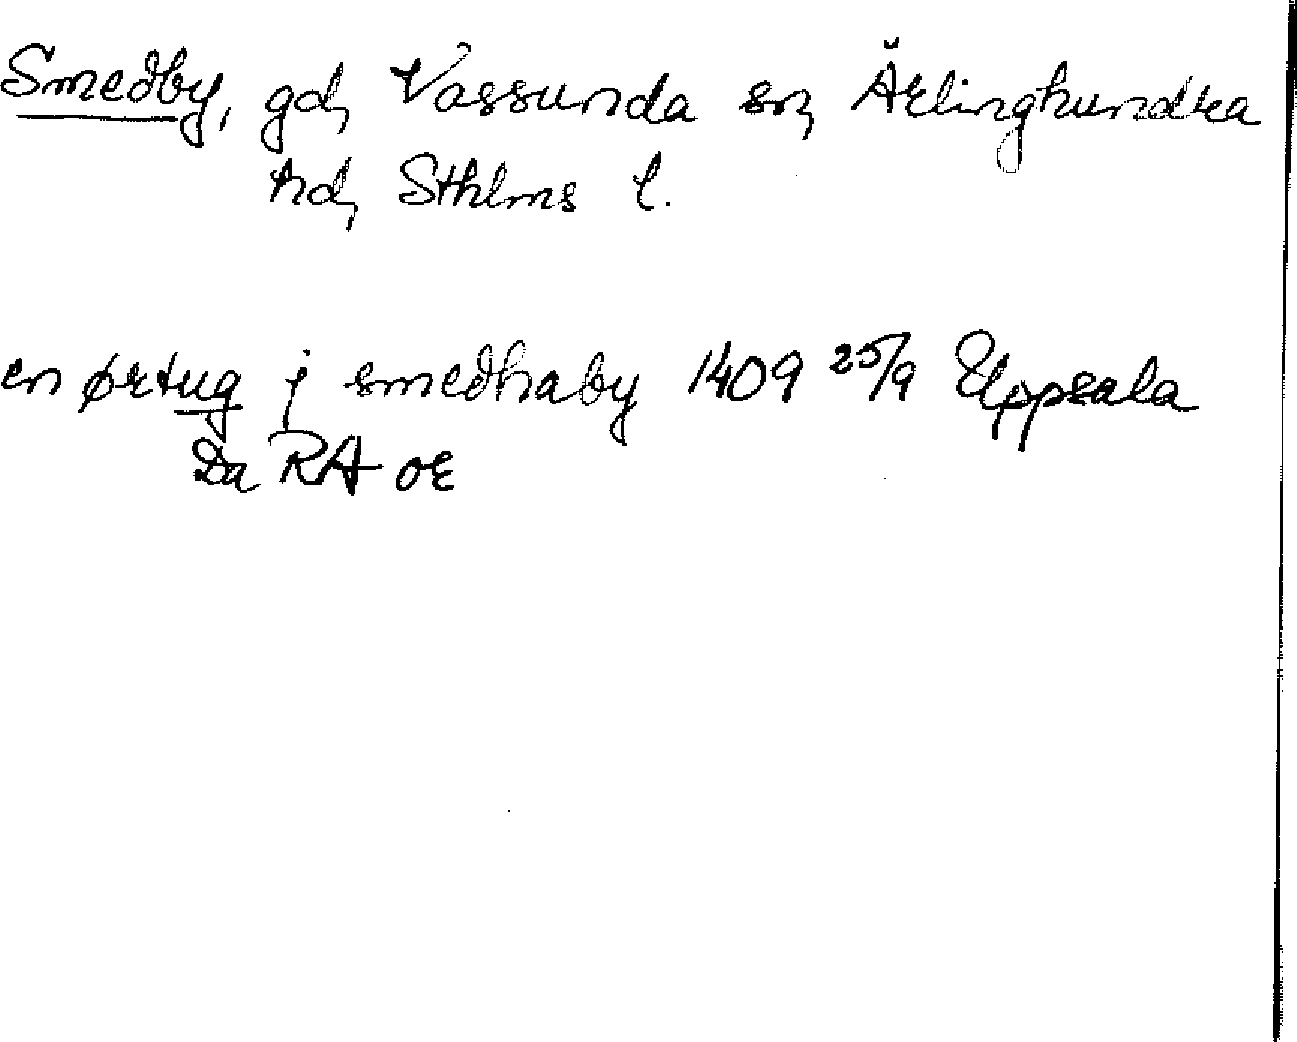 Smedby, gd, Vassunda sn, Ärlinghundra
hd, Sthlms l.
en ørtug j smedhaby 1409 25/9 Uppsala
Da RA or